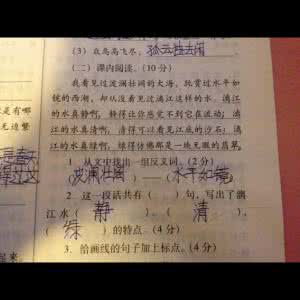 (3) 众鸟高飞尽，孤云独去闲
(二) 课内阅读。(10分)
我看见过波澜壮阔的大海，玩赏过水平如
镜的西湖，却从没看见过漓江这样的水。漓江
的水真静啊，静得让你感觉不到它在流动；漓江
的水真清啊，清得可以看见江底的沙石；漓江
的水真绿啊，绿得仿佛那是一块无瑕的翡翠。
1. 从文中找出一组反义词。(2分)
(波澜壮阔)——(水平如镜)
2. 这一段话共有( )句，写出了漓
江水( 静 )、( 清 )、
( 绿 )的特点。(4分)
3. 给画线的句子加上标点。(4分)
是有哪
无边繁